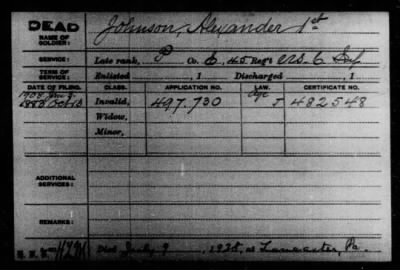 DEAD
NAME OF SOLDIER:
Johnson, Alexander 1st
SERVICE:
Late rank, P Co. 6, 45 Reg't U.S. C. Inf
TERM OF SERVICE:
Enlisted , 1 Discharged , 1
DATE OF FILING. CLASS. APPLICATION NO. LAW. CERTIFICATE NO.
Age
Invalid, 497.730 J 482548
Widow,
Minor,
ADDITIONAL SERVICES:
REMARKS:
Died July 9, 1928, at Lancaster, Pa.